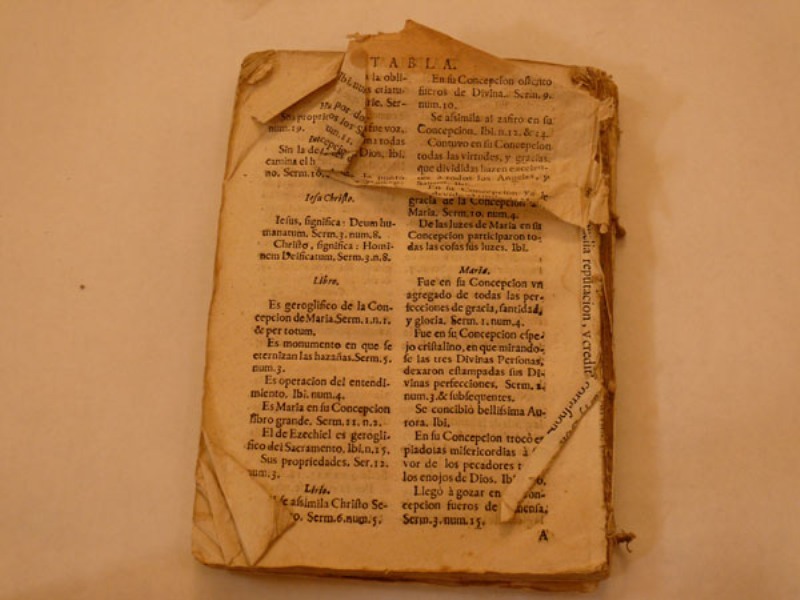 TABLA.
la obli-
Sus proprios
num.19.
Sin la de
camina el h
no. Serm.10.
Iesu Christo.
Iesus, significa: Deum hu-
manatum. Serm.3.num.8.
Christo, significa: Homi-
nem Deificatum. Serm.3.n.8.
Libro.
Es geroglifico de la Con-
cepcion de Maria.Serm.1.n.1.
& per totum.
Es monumento en que se
eternizan las hazañas.Serm.5.
num.3.
Es operacion del entendi-
miento. Ibi.num.4.
Es Maria en su Concepcion
libro grande. Serm.11.n.2.
El de Ezechiel es gerogli-
fico del Sacramento. Ibi.n.15.
Sus propriedades. Ser.12.
num.3.
Lirio.
se assimila Christo Se-
o. Serm.6.num.5.
En su Concepcion ostento
fueros de Divina. Serm.9.
num.10.
Se assimila al zafiro en su
Concepcion. Ibi.n.12.&14.
Contuvo en su Concepcion
todas las virtudes, y gracias,
que divididas
a todos los Angeles, y
gracia de la Concepcion
Maria. Serm.10. num.4.
De las luzes de Maria en su
Concepcion participaron to-
das las cosas sus luzes. Ibi.
Maria.
Fue en su Concepcion vn
agregado de todas las per-
fecciones de gracia, santidad,
y gloria. Serm. 1. num.4.
Fue en su Concepcion espe-
jo cristalino, en que mirando-
se las tres Divinas Personas,
dexaron estampadas sus Di-
vinas perfecciones. Serm. 2.
num.3.& subsequentes.
Se concibió bellissima Au-
rora. Ibi.
En su Concepcion trocò
piadosas misericordias à
vor de los pecadores
los enojos de Dios.
Llegò à gozar en
cepcion fueros de
Serm.3.num.15.
A
reputacion, y credit